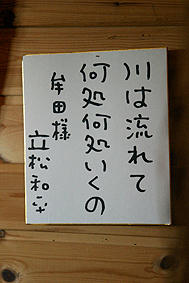 川は流れて
何処何処いくの
牟田様
立松和平